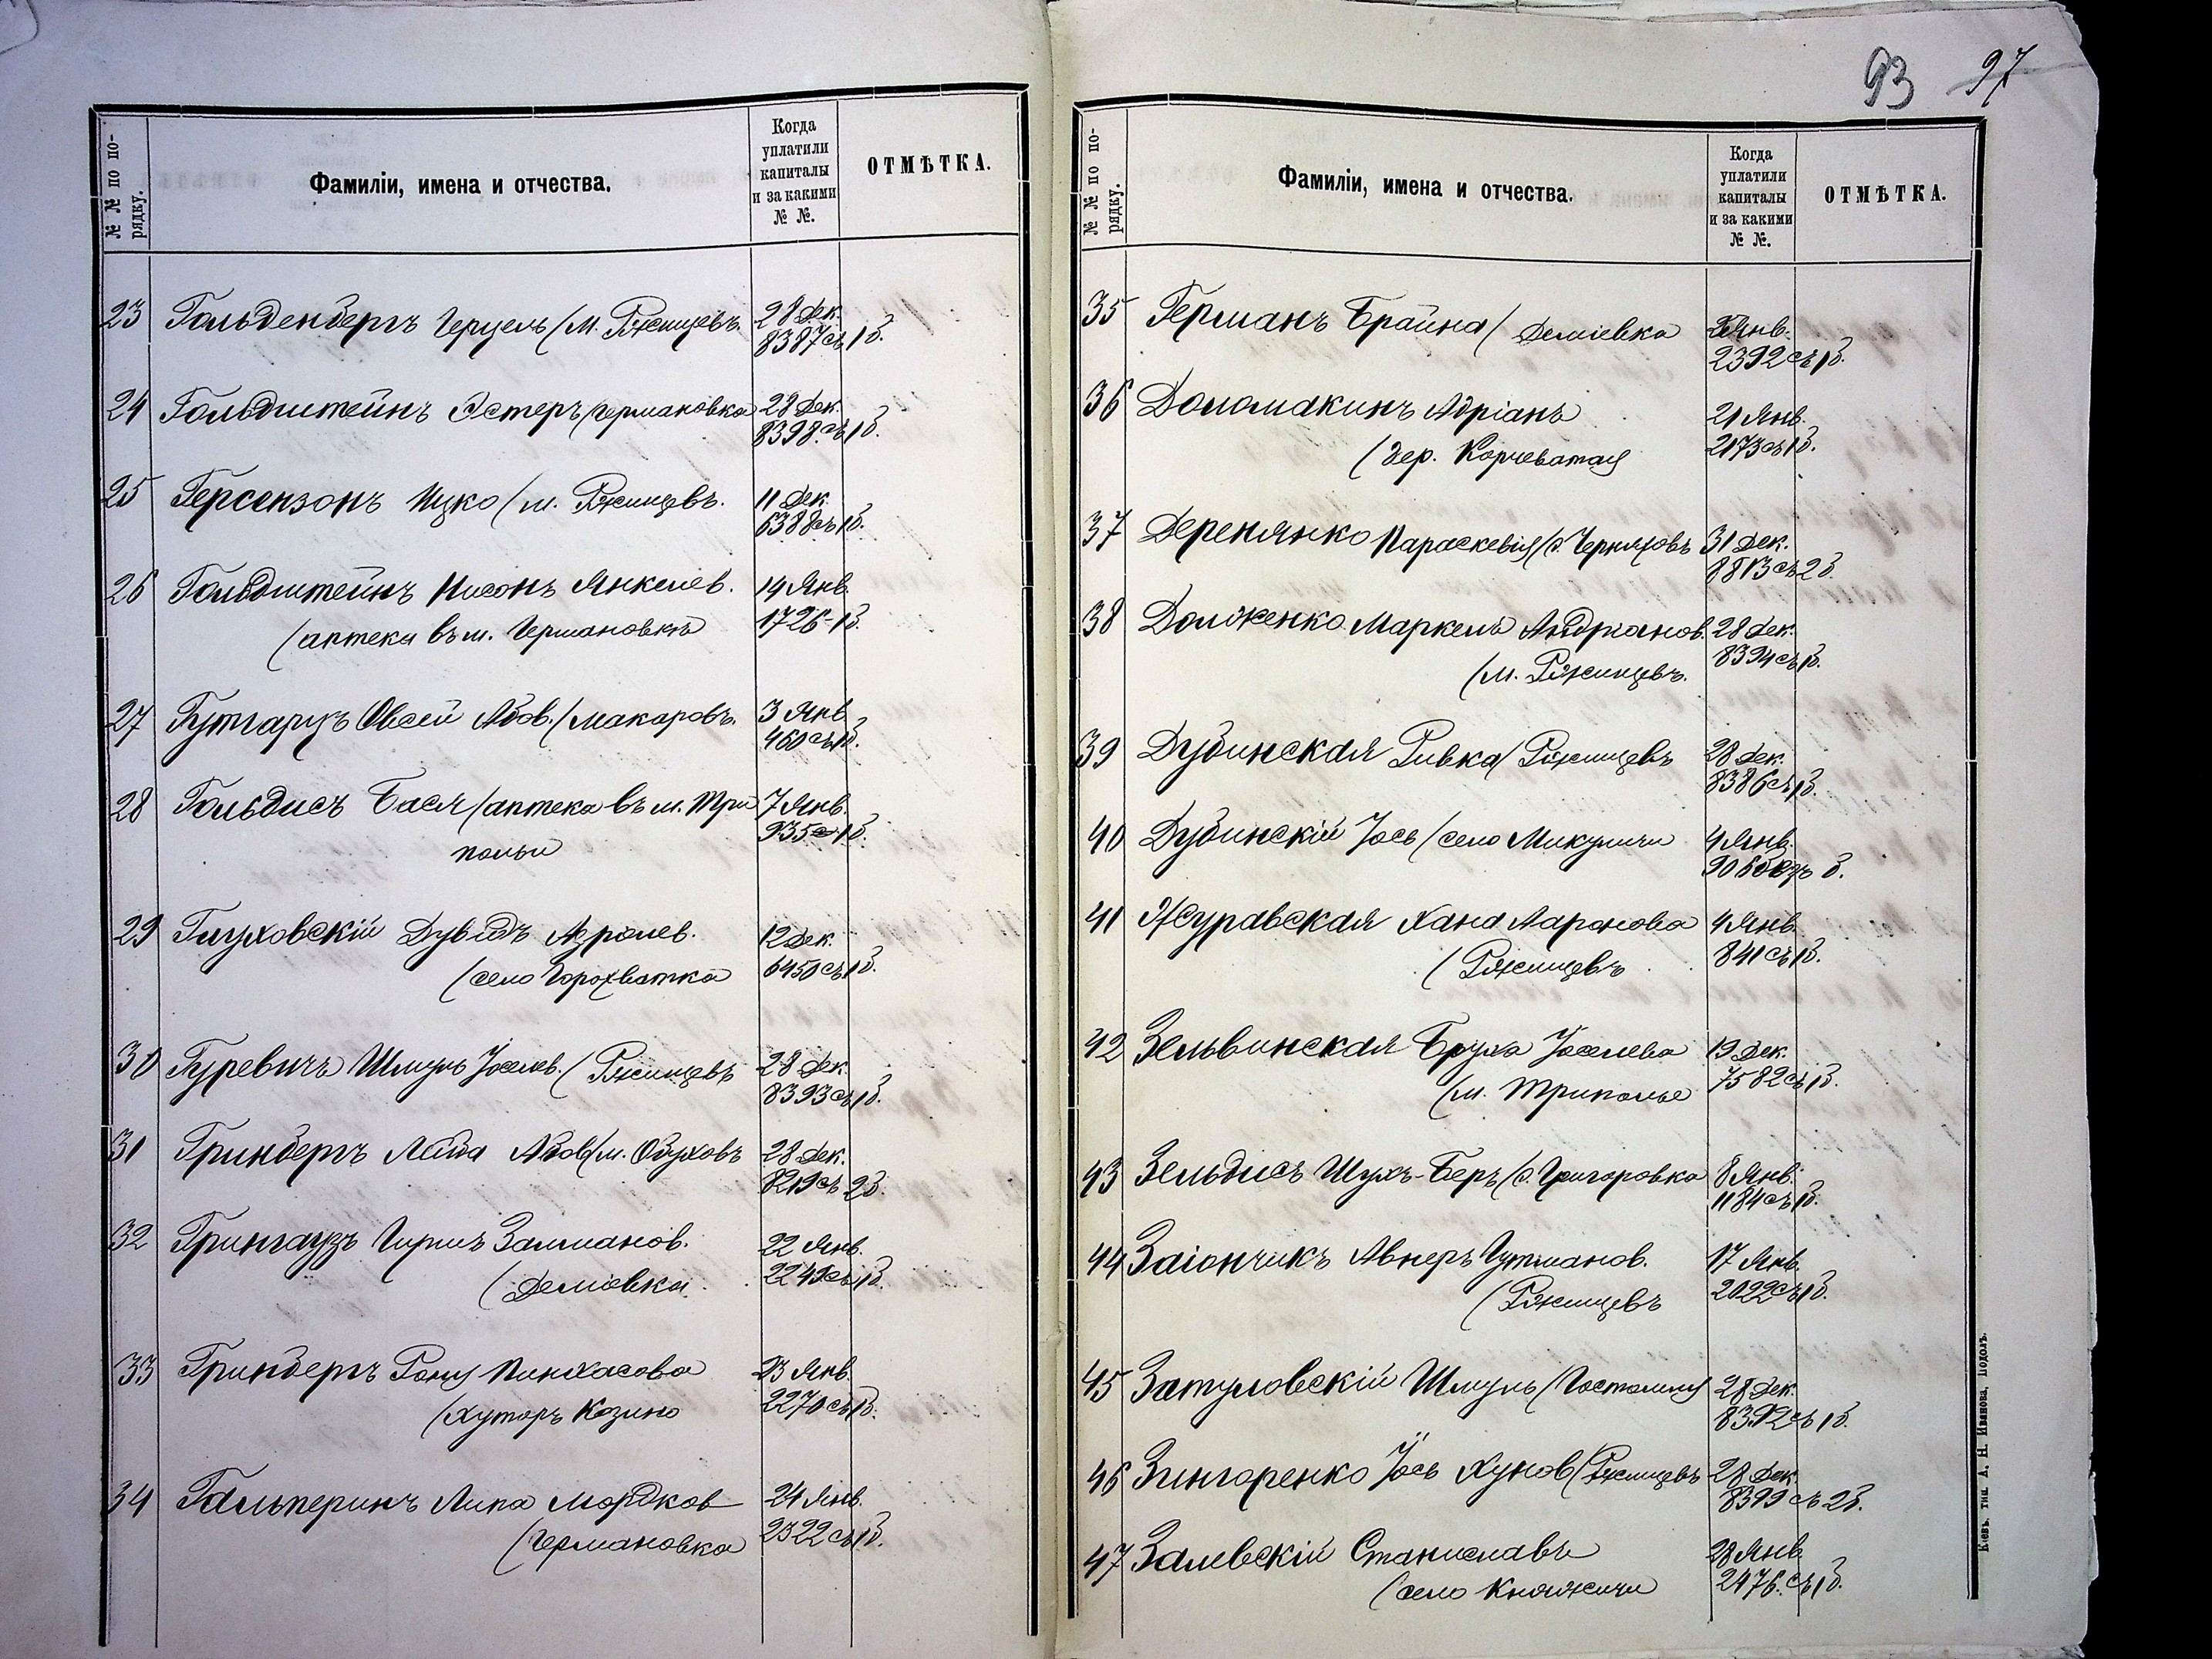 № № по по-
рядку.
Фамиліи, имена и отчества.
Когда
уплатили
капиталы
и за какими
№ №.
ОТМѢТКА.
23 Гольденбергъ Герцель (м. Ржищевъ. 28 Дек.
8387 съ 1 б.
24 Гольдштейнъ Эстеръ (Германовка 28 Дек.
8398 съ 1 б.
25 Герсензонъ Ицко (м. Ржищевъ. 11 Дек.
6388 съ 1 б.
26 Гольдштейнъ Нисонъ Янкелев. 14 Янв.
(аптека въ м. Германовкѣ 1726 - 1 б.
27 Гутгарцъ Овсей Абов. (Макаровъ. 3 Янв.
460 съ 1 б.
28 Гольдисъ Бася (аптека въ м. Три 7 Янв.
польи 935 с 1 б.
29 Глуховскій Дувидъ Азролев. 12 Дек.
(село Горохватка 6450 съ 1 б.
30 Гуревичъ Шмуль Іоселев. (Ржищевъ 28 Дек.
8393 съ 1 б.
31 Гринбергъ Лейба Абов (м. Обуховъ 28 Дек.
8219 съ 2 б.
32 Грингаузъ Гиршъ Залманов. 22 Янв.
(Деміевка. 2249 съ 1 б.
33 Гринбергъ Пинхасова 23 Янв.
(Хуторъ Козино 2270 съ 1 б.
34 Гальперинъ Липа Мордков 24 Янв.
(Германовка 2322 съ 1 б.
93 97
№ № по по-
рядку.
Фамиліи, имена и отчества.
Когда
уплатили
капиталы
и за какими
№ №.
ОТМѢТКА.
35 Германъ Брайна (Деміевка Янв.
2392 съ 1 б.
36 Доломакинъ Адріанъ 21 Янв.
(дер. Корчеватая 2173 съ 1 б.
37 Деренянко Параскевія (с. Черняховъ 31 Дек.
8813 съ 2 б.
38 Долженко Маркелъ Андріанов. 28 Дек.
(м. Ржищевъ. 8394 съ 1 б.
39 Дубинская Ривка (Ржищевъ 28 Дек.
8386 съ 1 б.
40 Дубинскій Іось (село Микуличи 4 Янв.
б.
41 Журавская Хана Ааронова 4 Янв.
(Ржищевъ 841 съ 1 б.
42 Зельвинская Бруха Іоселева 19 Дек.
(м. Триполье 7582 съ 1 б.
43 Зельдисъ Шулъ-Беръ (с. Григоровка 8 Янв.
1184 съ 1 б.
44 Заіончикъ Авнеръ Гутманов. 17 Янв.
(Ржищевъ 2022 съ 1 б.
45 Затуловскій Шмуль (Гостомля 28 Дек.
8392 съ 1 б.
46 Зингоренко Іось Хунов (Ржищевъ 28 Дек.
8399 съ 2 б.
47 Залевскій Станиславъ 28 Янв.
(село Княжичи 2476 съ 1 б.
Кіевъ. тип. А. Н. Иванова, Подолъ.